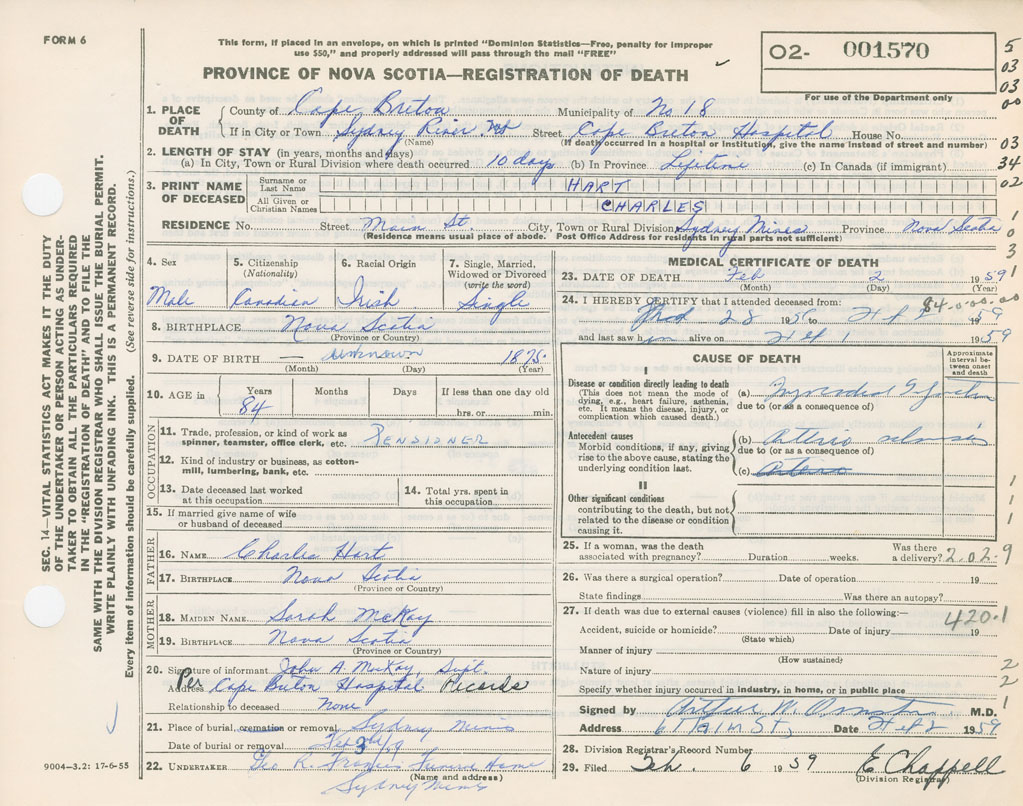 FORM 6
This form, if placed in an envelope, on which is printed "Dominion Statistics—Free, penalty for improper
use $50," and properly addressed will pass through the mail "FREE"
PROVINCE OF NOVA SCOTIA—REGISTRATION OF DEATH
02- 001570
For use of the Department only
5
03
03
00
03
34
02
1
0
3
1. PLACE OF DEATH
County of Cape Breton Municipality of No 18
If in City or Town Sydney River Street Cape Breton Hospital House No.
(Name) (If death occurred in a hospital or institution, give the name instead of street and number)
2. LENGTH OF STAY (in years, months and days)
(a) In City, Town or Rural Division where death occurred 10 days (b) In Province Lifetime (c) In Canada (if immigrant)
3. PRINT NAME OF DECEASED
Surname or Last Name HART
All Given or Christian Names CHARLES
RESIDENCE No. Street Main St. City, Town or Rural Division Sydney Mines Province Nova Scotia
(Residence means usual place of abode. Post Office Address for residents in rural parts not sufficient)
4. Sex
Male
5. Citizenship
(Nationality)
Canadian
6. Racial Origin
Irish
7. Single, Married,
Widowed or Divorced
(write the word)
Single
8. BIRTHPLACE Nova Scotia
(Province or Country)
9. DATE OF BIRTH — unknown 1875
(Month) (Day) (Year)
10. AGE in
Years Months Days If less than one day old
84 hrs. or min.
OCCUPATION
11. Trade, profession, or kind of work as
spinner, teamster, office clerk, etc. PENSIONER
12. Kind of industry or business, as cotton-
mill, lumbering, bank, etc.
13. Date deceased last worked
at this occupation
14. Total yrs. spent in
this occupation
15. If married give name of wife
or husband of deceased
FATHER
16. NAME Charlie Hart
17. BIRTHPLACE Nova Scotia
(Province or Country)
MOTHER
18. MAIDEN NAME Sarah McKay
19. BIRTHPLACE Nova Scotia
(Province or Country)
20. Signature of informant John A. McKay, Supt.
Address Per Cape Breton Hospital Records
Relationship to deceased None
21. Place of burial, cremation or removal Sydney Mines
Date of burial or removal Feb 3rd/59
22. UNDERTAKER Geo R. Francis Funeral Home
(Name and address)
Sydney Mines
MEDICAL CERTIFICATE OF DEATH
23. DATE OF DEATH Feb 2 1959
(Month) (Day) (Year)
24. I HEREBY CERTIFY that I attended deceased from: 84.0.00.00
28 1956 to Feb 1959
and last saw him alive on Feb 1 1959
CAUSE OF DEATH
Approximate
interval be-
tween onset
and death
I
Disease or condition directly leading to death
(This does not mean the mode of
dying, e.g., heart failure, asthenia,
etc. It means the disease, injury, or
complication which caused death.)
(a) Myocardial
due to (or as a consequence of)
Antecedent causes
Morbid conditions, if any, giving
rise to the above cause, stating the
underlying condition last.
(b) Arterio sclerosis
due to (or as a consequence of)
(c)
II
Other significant conditions
contributing to the death, but not
related to the disease or condition
causing it.
1
1
1
25. If a woman, was the death
associated with pregnancy? Duration weeks. Was there
a delivery? 2.02.9
26. Was there a surgical operation? Date of operation 19
State findings Was there an autopsy?
27. If death was due to external causes (violence) fill in also the following:— 420.1
Accident, suicide or homicide? Date of injury 19
(State which)
Manner of injury
(How sustained)
Nature of injury
Specify whether injury occurred in industry, in home, or in public place
2
2
1
Signed by Arthur W. M.D.
Address Main St, Date Feb 2 1959
28. Division Registrar's Record Number
29. Filed Feb. 6 1959 E Chappell
(Division Registrar)
SEC. 14—VITAL STATISTICS ACT MAKES IT THE DUTY
OF THE UNDERTAKER OR PERSON ACTING AS UNDER-
TAKER TO OBTAIN ALL THE PARTICULARS REQUIRED
IN THE "REGISTRATION OF DEATH" AND TO FILE THE
SAME WITH THE DIVISION REGISTRAR WHO SHALL ISSUE THE BURIAL PERMIT.
WRITE PLAINLY WITH UNFADING INK. THIS IS A PERMANENT RECORD.
Every item of information should be carefully supplied. (See reverse side for instructions.)
9004—3.2: 17-6-55